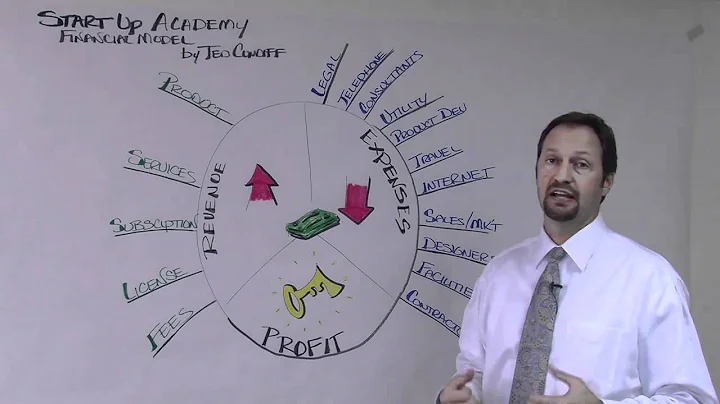 START UP ACADEMY
FINANCIAL MODEL
by TED CONOFF
PRODUCT
SERVICES
SUBSCIPTION
LICENSE
FEES
REVENUE
LEGAL
TELEPHONE
CONSULTANTS
UTILITY
PRODUCT DEV
TRAVEL
INTERNET
SALES/MKT
DESIGNER
FACILITIE
CONTRACT
EXPENSES
PROFIT